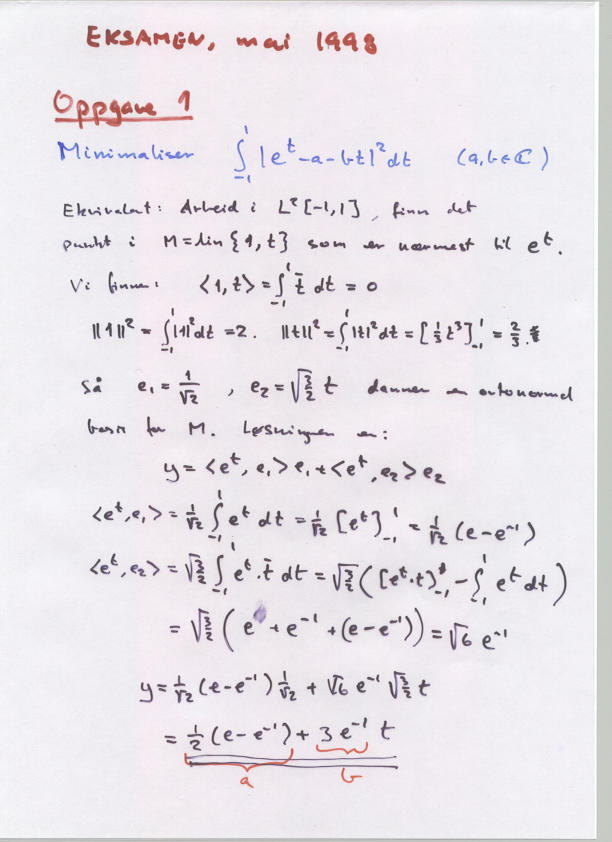 EKSAMEN, mai 1998
Oppgave 1
Minimaliser ∫₋₁¹ |eᵗ-a-bt|² dt (a,b∈ℂ)
Ekvivalent: Arbeid i L²[-1,1], finn det
punkt i M=lin{1,t} som er nærmest til eᵗ.
Vi finner: <1,t> = ∫₋₁¹ t̄ dt = 0
||1||² = ∫₋₁¹ |1|² dt = 2. ||t||² = ∫₋₁¹ |t|² dt = [⅓t³]₋₁¹ = 2/3.
Så e₁ = 1/√2, e₂ = √(3/2) t danner en ortonormal
basis for M. Løsningen er:
y = <eᵗ, e₁>e₁ + <eᵗ, e₂>e₂
<eᵗ,e₁> = 1/√2 ∫₋₁¹ eᵗ dt = 1/√2 [eᵗ]₋₁¹ = 1/√2 (e-e⁻¹)
<eᵗ,e₂> = √(3/2) ∫₋₁¹ eᵗ·t̄ dt = √(3/2) ([eᵗ·t]₋₁¹ - ∫₋₁¹ eᵗ dt)
= √(3/2) (e + e⁻¹ + (e-e⁻¹)) = √6 e⁻¹
y = 1/√2 (e-e⁻¹) 1/√2 + √6 e⁻¹ √(3/2) t
= 1/2 (e-e⁻¹) + 3e⁻¹ t
a b